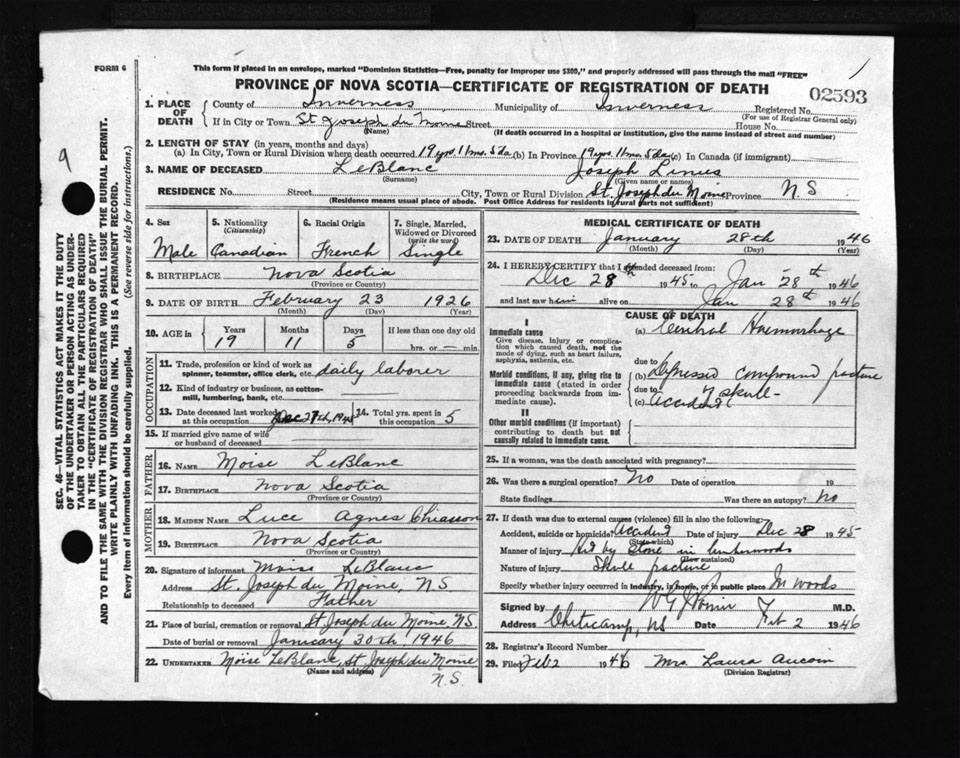 FORM 6
This form if placed in an envelope, marked "Dominion Statistics—Free, penalty for improper use $300," and properly addressed will pass through the mail "FREE"
1
PROVINCE OF NOVA SCOTIA—CERTIFICATE OF REGISTRATION OF DEATH
02593
9
SEC. 46—VITAL STATISTICS ACT MAKES IT THE DUTY
OF THE UNDERTAKER OR PERSON ACTING AS UNDER-
TAKER TO OBTAIN ALL THE PARTICULARS REQUIRED
IN THE "CERTIFICATE OF REGISTRATION OF DEATH"
AND TO FILE THE SAME WITH THE DIVISION REGISTRAR WHO SHALL ISSUE THE BURIAL PERMIT.
WRITE PLAINLY WITH UNFADING INK. THIS IS A PERMANENT RECORD.
Every item of Information should be carefully supplied. (See reverse side for instructions.)
1. PLACE OF DEATH County of Inverness Municipality of Inverness Registered No.
(For use of Registrar General only)
If in City or Town St Joseph du Moine Street House No.
(Name) (If death occurred in a hospital or institution, give the name instead of street and number)
2. LENGTH OF STAY (in years, months and days)
(a) In City, Town or Rural Division where death occurred 19 yrs. 11 ms. 5 da. (b) In Province 19 yrs. 11 ms. 5 da (c) In Canada (if immigrant)
3. NAME OF DECEASED LeBlanc Joseph Linus
(Surname) (Given name or names)
RESIDENCE No. Street City, Town or Rural Division St. Joseph du Moine Province N S
(Residence means usual place of abode. Post Office Address for residents in rural parts not sufficient)
4. Sex Male
5. Nationality (Citizenship) Canadian
6. Racial Origin French
7. Single, Married, Widowed or Divorced (write the word) Single
8. BIRTHPLACE Nova Scotia
(Province or Country)
9. DATE OF BIRTH February 23 1926
(Month) (Day) (Year)
10. AGE in Years Months Days If less than one day old
19 11 5 hrs. or — min.
OCCUPATION
11. Trade, profession or kind of work as spinner, teamster, office clerk, etc. daily laborer
12. Kind of industry or business, as cotton-mill, lumbering, bank, etc.
13. Date deceased last worked at this occupation Dec 27th, 1945
14. Total yrs. spent in this occupation 5
15. If married give name of wife or husband of deceased
FATHER
16. NAME Moise LeBlanc
17. BIRTHPLACE Nova Scotia
(Province or Country)
MOTHER
18. MAIDEN NAME Luce Agnes Chiasson
19. BIRTHPLACE Nova Scotia
(Province or Country)
20. Signature of informant Moise LeBlanc
Address St. Joseph du Moine, N S
Relationship to deceased Father
21. Place of burial, cremation or removal St. Joseph du Moine N S.
Date of burial or removal January 30th 1946
22. UNDERTAKER Moïse LeBlanc, St Joseph du Moine
(Name and address)
N.S.
MEDICAL CERTIFICATE OF DEATH
23. DATE OF DEATH January 28th 1946
(Month) (Day) (Year)
24. I HEREBY CERTIFY that I attended deceased from:
Dec 28th 1945 to Jan 28th 1946
and last saw him alive on Jan 28th 1946
CAUSE OF DEATH
I
Immediate cause
Give disease, injury or complication which caused death, not the mode of dying, such as heart failure, asphyxia, asthenia, etc.
(a) Cerebral Haemorrhage
due to
Morbid conditions, if any, giving rise to immediate cause (stated in order proceeding backwards from immediate cause).
(b) Depressed compound fracture
due to of skull-
(c) accident
II
Other morbid conditions (if important) contributing to death but not causally related to immediate cause.
25. If a woman, was the death associated with pregnancy?
26. Was there a surgical operation? No Date of operation 19
State findings Was there an autopsy? No
27. If death was due to external causes (violence) fill in also the following:
Accident, suicide or homicide? Accident Date of injury Dec 28 1945
(State which)
Manner of injury Hit by stone in lumberwoods
(How sustained)
Nature of injury Skull fracture
Specify whether injury occurred in industry, in home, or in public place In woods
Signed by M.D.
Address Cheticamp, NS Date Feb 2 1946
28. Registrar's Record Number
29. Filed Feb 2 1946 Mrs Laura Aucoin
(Division Registrar)